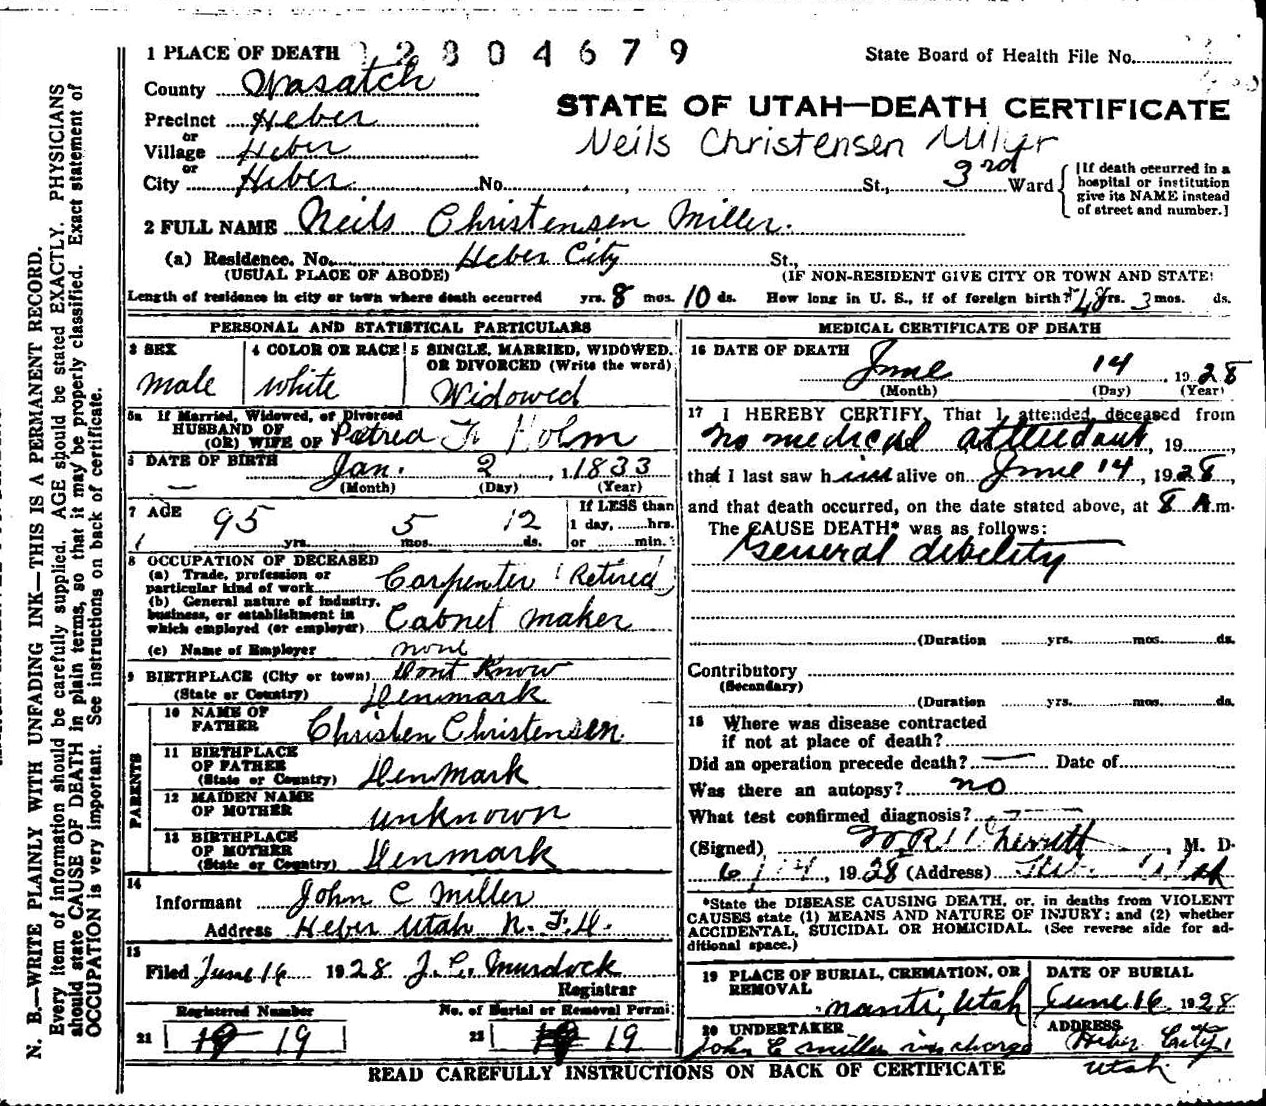 1 PLACE OF DEATH 2804679 State Board of Health File No.
County Wasatch
STATE OF UTAH—DEATH CERTIFICATE
Precinct Heber
or
Village Heber
Neils Christensen
or
City Heber No. St., 3rd Ward
[If death occurred in a
hospital or institution
give its NAME instead
of street and number.]
2 FULL NAME Neils Christensen Miller.
(a) Residence. No. Heber City St.,
(USUAL PLACE OF ABODE) (IF NON-RESIDENT GIVE CITY OR TOWN AND STATE)
Length of residence in city or town where death occurred yrs. 8 mos. 10 ds. How long in U. S., if of foreign birth? 48 yrs. 3 mos. ds.
PERSONAL AND STATISTICAL PARTICULARS
3 SEX
male
4 COLOR OR RACE
white
5 SINGLE, MARRIED, WIDOWED,
OR DIVORCED (Write the word)
Widowed
5a If Married, Widowed, or Divorced
HUSBAND OF
(OR) WIFE OF Holm
6 DATE OF BIRTH Jan. 2, 1833
(Month) (Day) (Year)
7 AGE
95 yrs. 5 mos. 12 ds.
If LESS than
1 day, hrs.
or min.
8 OCCUPATION OF DECEASED
(a) Trade, profession or
particular kind of work Carpenter (Retired)
(b) General nature of industry,
business, or establishment in
which employed (or employer) Cabnet maker
(c) Name of Employer none
9 BIRTHPLACE (City or town) Dont Know
(State or Country) Denmark
PARENTS
10 NAME OF
FATHER Christen Christensen
11 BIRTHPLACE
OF FATHER
(State or Country) Denmark
12 MAIDEN NAME
OF MOTHER unknown
13 BIRTHPLACE
OF MOTHER
(State or Country) Denmark
14
Informant John C Miller
Address Heber Utah
15
Filed June 16 1928 Murdock
Registrar
Registered Number
21 19 19
No. of Burial or Removal Permit
22 19 19
MEDICAL CERTIFICATE OF DEATH
16 DATE OF DEATH June 14, 1928
(Month) (Day) (Year)
17 I HEREBY CERTIFY, That I attended deceased from
no medical attendant, 19
that I last saw him alive on June 14, 1928,
and that death occurred, on the date stated above, at 8 A.m.
The CAUSE DEATH* was as follows:
General debility
(Duration yrs. mos. ds.
Contributory
(Secondary)
(Duration yrs. mos. ds.
18 Where was disease contracted
if not at place of death?
Did an operation precede death? — Date of
Was there an autopsy? no
What test confirmed diagnosis?
(Signed) , M. D.
6/14, 1928 (Address)
*State the DISEASE CAUSING DEATH, or, in deaths from VIOLENT
CAUSES state (1) MEANS AND NATURE OF INJURY; and (2) whether
ACCIDENTAL, SUICIDAL OR HOMICIDAL. (See reverse side for ad-
ditional space.)
19 PLACE OF BURIAL, CREMATION, OR
REMOVAL
Manti, Utah
DATE OF BURIAL
June 16 1928
20 UNDERTAKER
John C Miller in charge
ADDRESS
Heber City,
Utah
READ CAREFULLY INSTRUCTIONS ON BACK OF CERTIFICATE
N. B.—WRITE PLAINLY WITH UNFADING INK—THIS IS A PERMANENT RECORD.
Every item of information should be carefully supplied. AGE should be stated EXACTLY. PHYSICIANS
should state CAUSE OF DEATH in plain terms, so that it may be properly classified. Exact statement of
OCCUPATION is very important. See instructions on back of certificate.